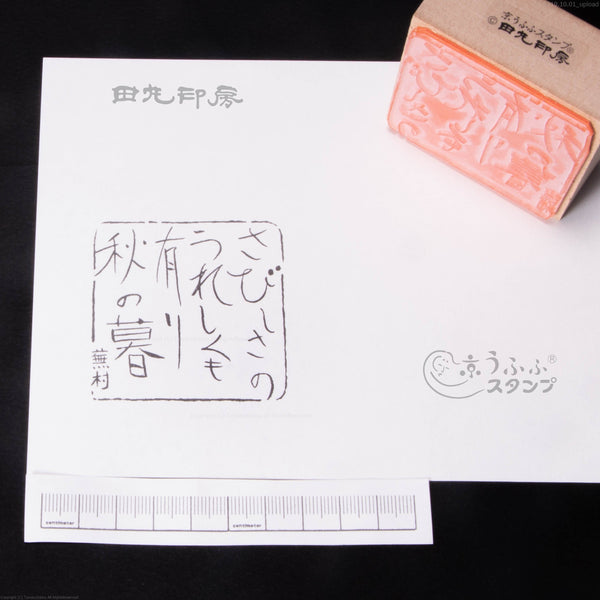 京うふふスタンプ®
©田丸印房
田丸印房
さびしさの
うれしくも
有り
秋の暮
蕪村
京うふふ®
スタンプ
centimeter
centimeter